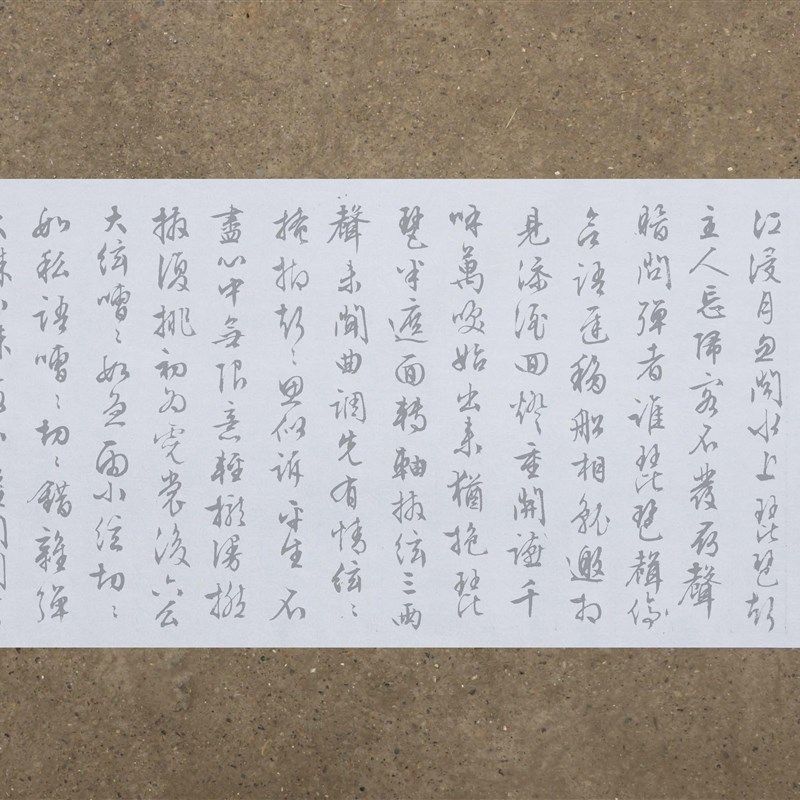 江浸月忽聞水上琵琶聲
主人忘歸客不發尋聲
暗問彈者誰琵琶聲停
語遲移船相就邀相
見添酒回燈重開讌千
呼萬喚始出來猶抱琵
琶半遮面轉軸撥絃三兩
聲未曲調先有情絃〻
掩抑聲〻思似訴平生不
盡心中無限意輕攏慢撚
撥復挑初為霓裳後六么
大絃嘈〻如急雨小絃切〻
如私語嘈〻切〻錯雜彈